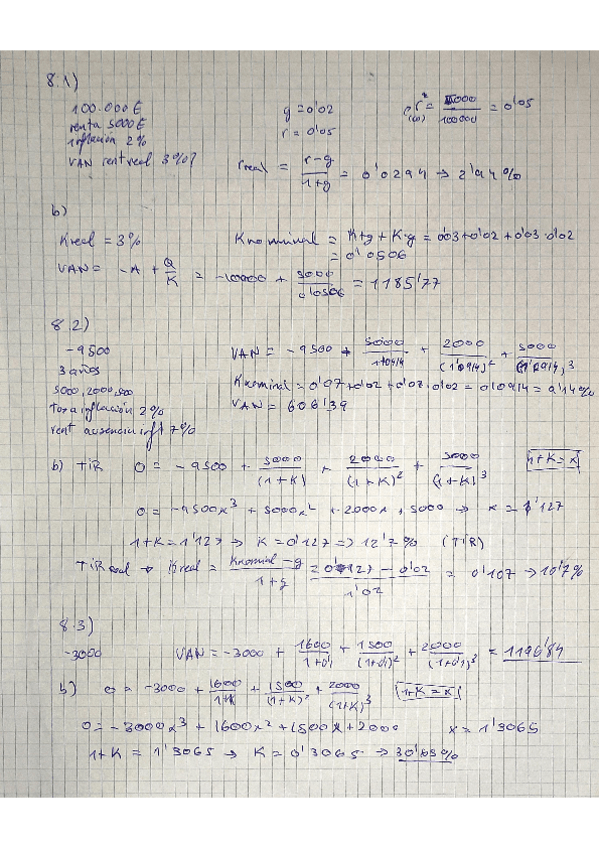 8.1)
100.000€
renta 5000€
inflación 2%
VAN rent real 3%?
g = 0'02
r = 0'05
r* = 5000 / 100000 = 0'05
r real = r-g / 1+g = 0'0294 → 2'94%
b)
K real = 3%
K nominal = K+g + K·g = 0'03+0'02+0'03·0'02
= 0'0506
VAN = -A + Q/K = -10000 + 5000 / 0'0506 = 1185'77
8.2)
-9500
3 años
5000, 2000, 500
tasa inflación 2%
rent ausencia infl 7%
VAN = -9500 + 5000 / 1'0914 + 2000 / (1'0914)² + 5000 / (1'0914)³
K nominal = 0'07+0'02+0'07·0'02 = 0'0914 = 9'14%
VAN = 606'39
b) TIR 0 = -9500 + 5000 / (1+K) + 2000 / (1+K)² + 5000 / (1+K)³ 1+K=x
0 = -9500x³ + 5000x² + 2000x + 5000 → x = 1'127
1+K = 1'127 → K = 0'127 => 12'7% (TIR)
TIR real → K real = K nominal - g / 1+g = 0'127 - 0'02 / 1'02 = 0'107 → 10'7%
8.3)
-3000
VAN = -3000 + 1600 / 1+0'1 + 1500 / (1+0'1)² + 2000 / (1+0'1)³ = 1196'84
b) 0 = -3000 + 1600 / 1+K + 1500 / (1+K)² + 2000 / (1+K)³ 1+K = x
0 = -3000x³ + 1600x² + 1500x + 2000 x = 1'3065
1+K = 1'3065 → K = 0'3065 → 30'65%